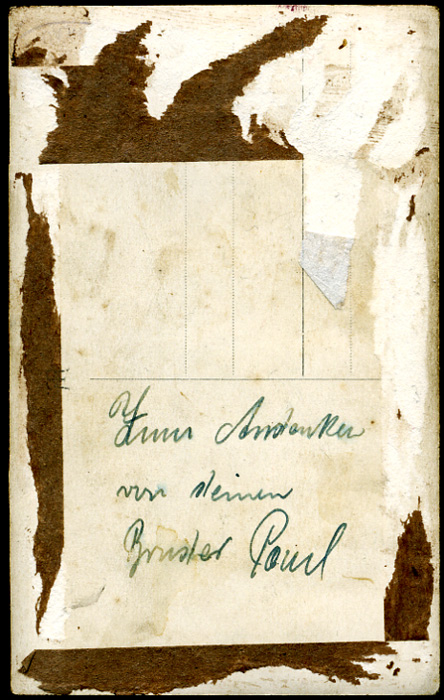 Zum Andenken
von deinen
Bruder Paul